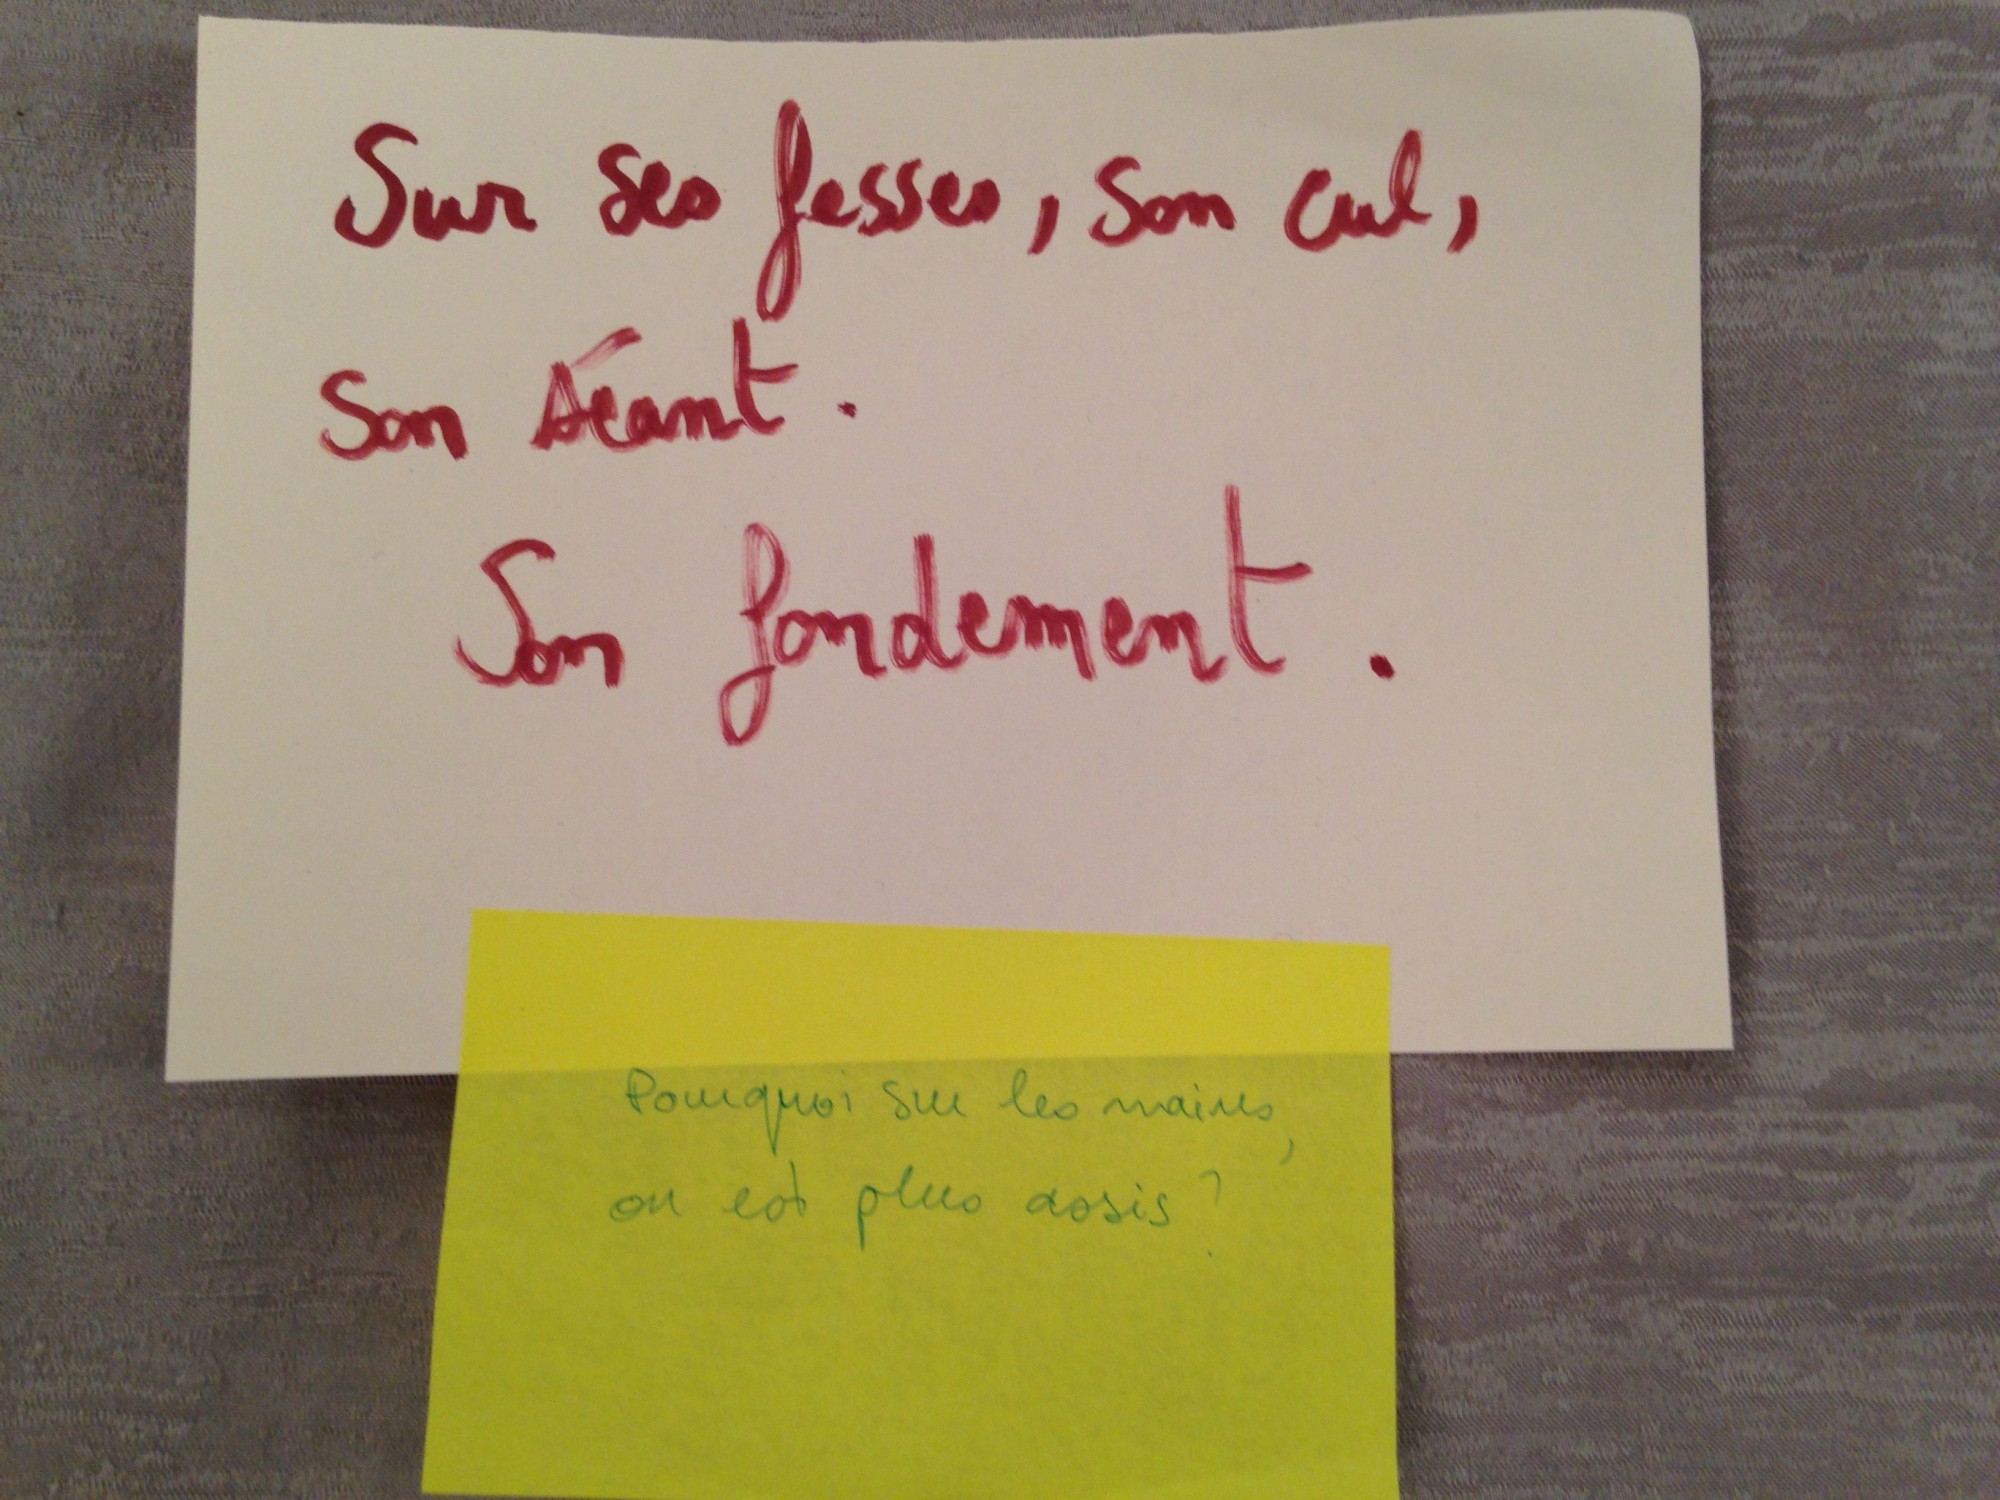 Sur ses fesses, son cul,
son séant.
Son fondement.
Pourquoi sur les mains,
on est plus assis?